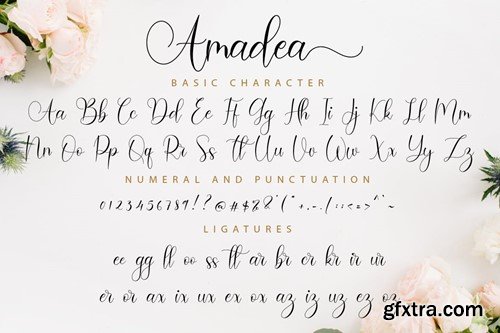 Amadea
BASIC CHARACTER
Aa Bb Cc Dd Ee Ff Gg Hh Ii Jj Kk Ll Mm
Nn Oo Pp Qq Rr Ss tt Uu Vv Ww Xx Yy Zz
NUMERAL AND PUNCTUATION
0123456789!?@#$
LIGATURES
ee gg ll oo ss tt ar br er kr ir ur
er or ax ix ux ex ox az iz uz ez oz
gfxtra.com